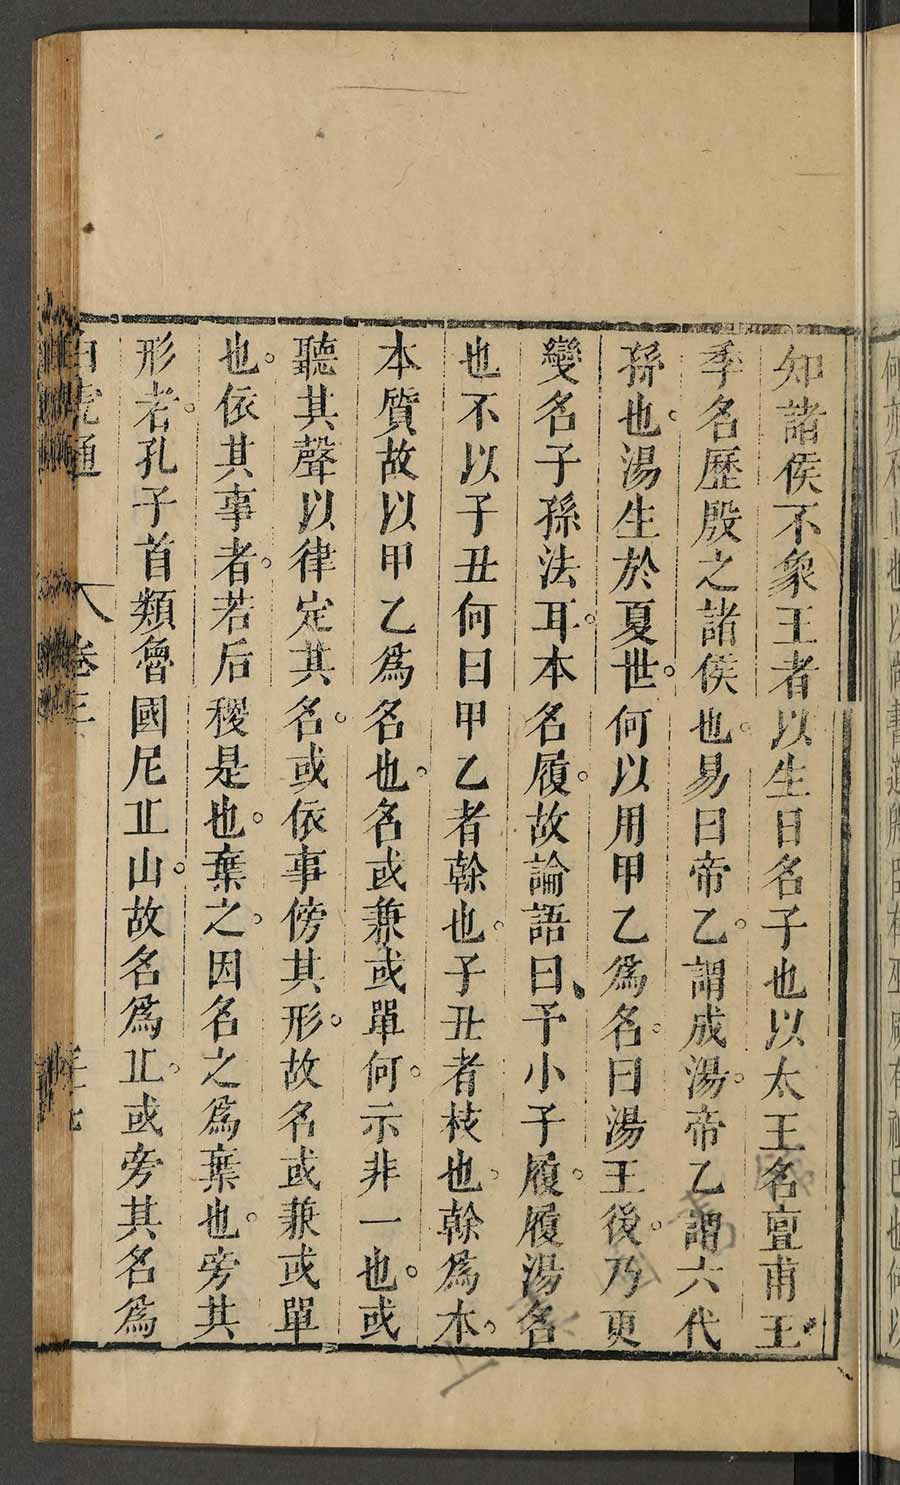 知諸侯不象王者以生日名子也以太王名亶甫王
季名歷殷之諸侯也易曰帝乙謂成湯帝乙謂六代
孫也湯生於夏世何以用甲乙爲名曰湯王後乃更
變名子孫法耳本名履故論語曰予小子履履湯名
也不以子丑何曰甲乙者幹也子丑者枝也幹爲本
本質故以甲乙爲名也名或兼或單何示非一也或
聽其聲以律定其名或依事傍其形故名或兼或單
也依其事者若后稷是也棄之因名之爲棄也旁其
形者孔子首類魯國尼丠山故名爲丠或旁其名爲
白虎通 卷三